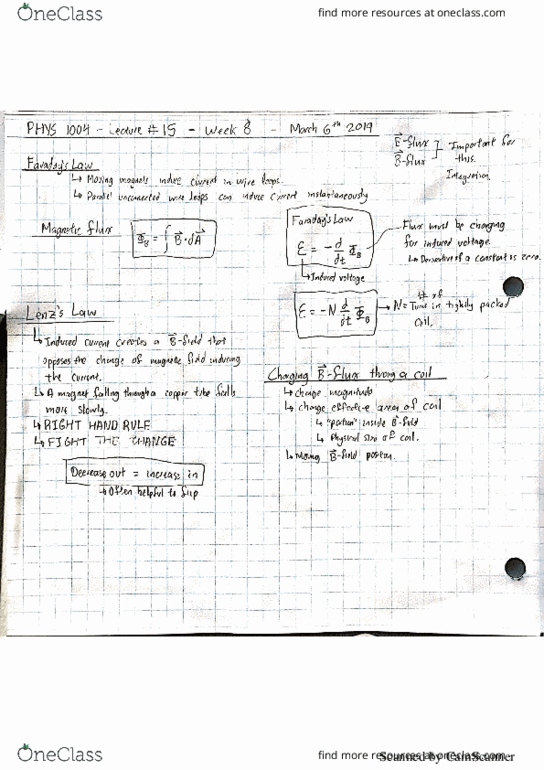 OneClass
find more resources at oneclass.com
PHYS 1004 - Lecture #15 - Week 8 - March 6th 2019
E-flux
B-flux
Important for this.
Integration.
Faraday's Law
↳ Moving magnets induce current in wire loops.
↳ Parallel unconnected wire loops can induce current instantaneously
Magnetic flux
Φ_B = ∫ B·dA
Faraday's Law
ε = - d/dt Φ_B
↳ Induced voltage
Flux must be changing
for induced voltage.
↳ Derivative of a constant is zero.
ε = -N d/dt Φ_B
→ N = # of Turns in tightly packed
coil.
Lenz's Law
↳ Induced current creates a B-field that
opposes the change of magnetic field inducing
the current.
↳ A magnet falling through a copper tube falls
more slowly.
↳ RIGHT HAND RULE
↳ FIGHT THE CHANGE
Decrease out = increase in
→ Often helpful to flip
Changing B-flux through a coil
↳ change magnitude
↳ change effective area of coil
↳ "portion" inside B-field
↳ Physical size of coil.
↳ Moving B-field
OneClass
find more resources at oneclass.com
Scanned by CamScanner